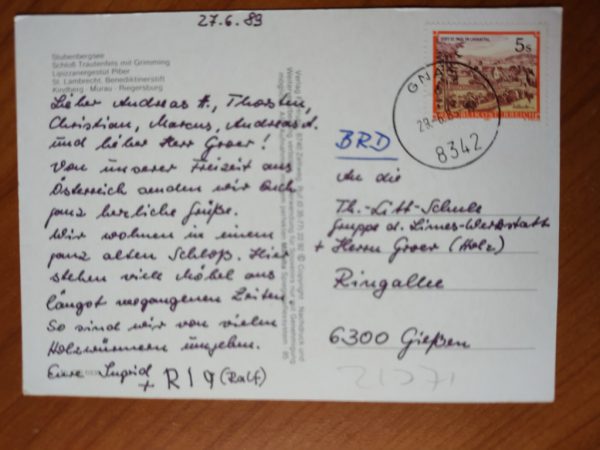 27.6.89
Stubenbergsee
Schloß Trautenfels mit Grimming
Lipizzanergestüt Piber
St. Lambrecht, Benediktinerstift
Kindberg · Murau · Riegersburg
Lieber Andreas F., Thorsten,
Christian, Marcus, Andreas A.
und lieber Herr Groer!
Von unserer Freizeit aus
Österreich senden wir Euch
ganz herzliche Grüße.
Wir wohnen in einem
ganz alten Schloß. Hier
stehen viele Möbel aus
längst vergangenen Zeiten
So sind wir von vielen
Holzwürmern umgeben.
Eure Ingrid
+ (Ralf)
5s
8342
BRD
An die
Th.-Litt-Schule
Gruppe d. Limes-Werkstatt
+ Herrn Groer (Holz)
Ringallee
6300 Gießen